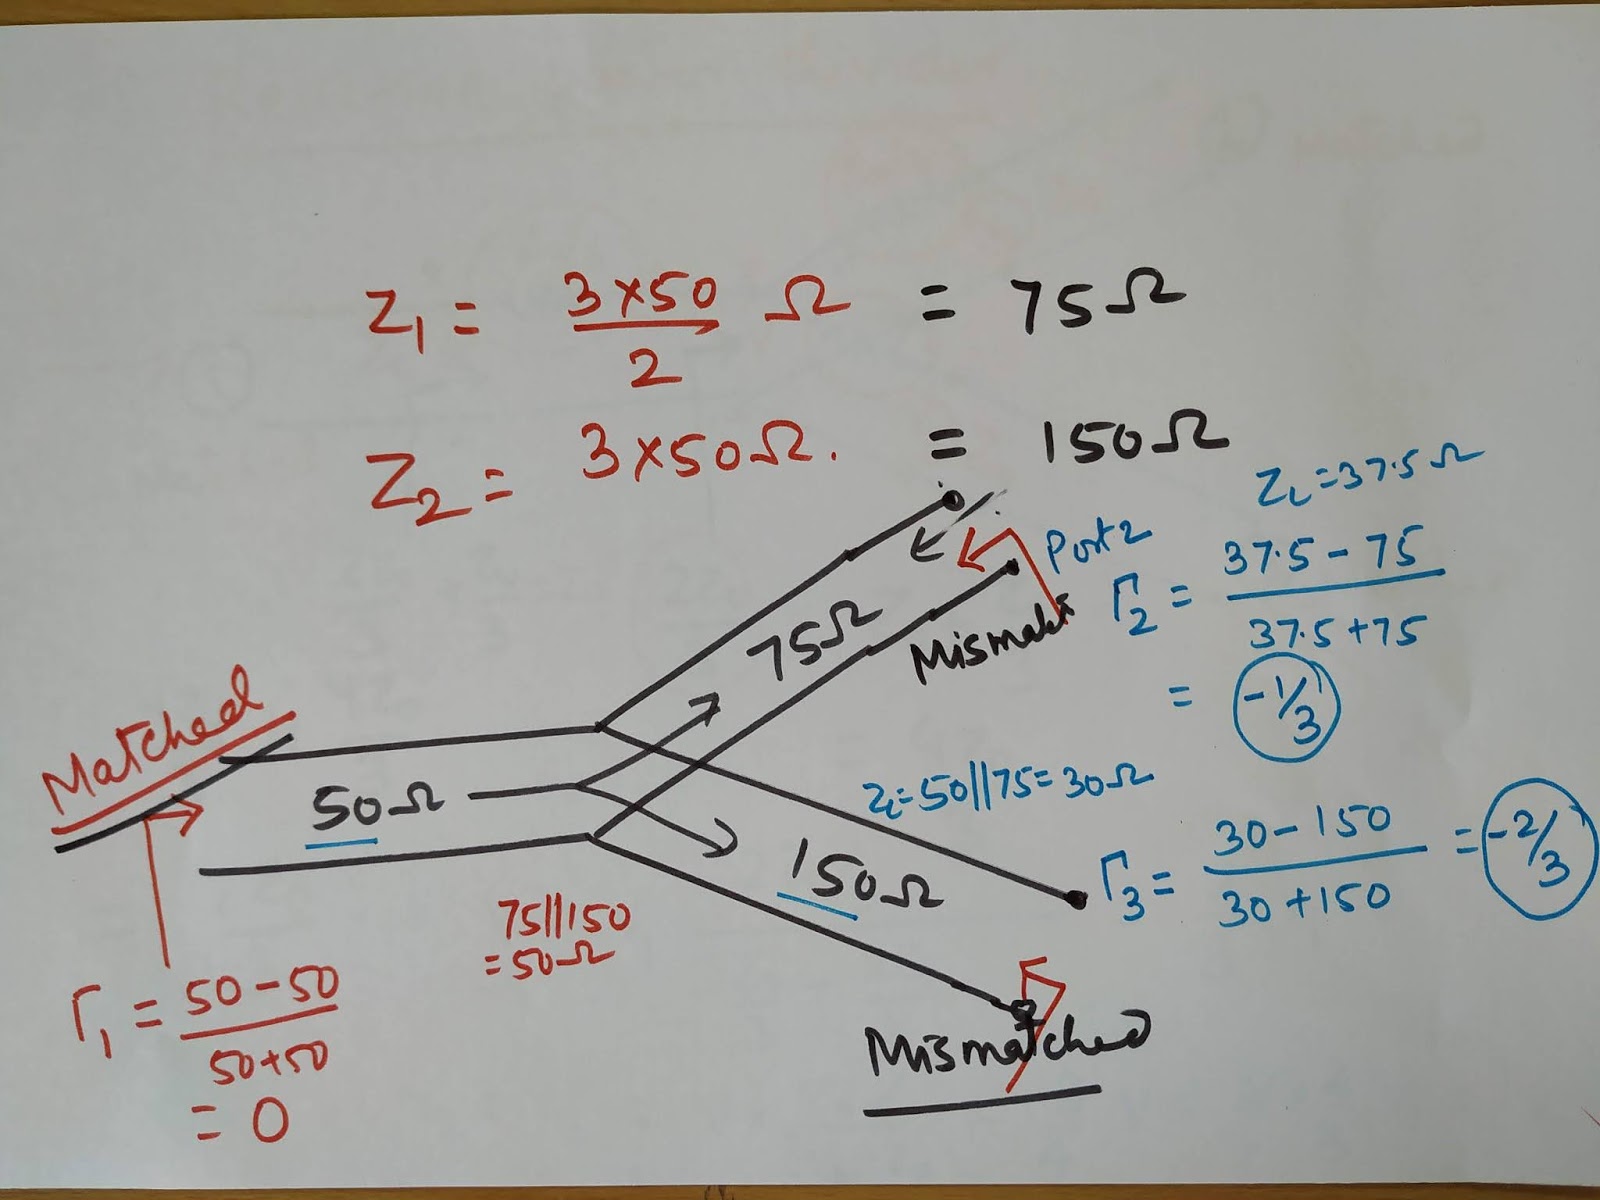 Z₁ = 3×50/2 Ω = 75Ω
Z₂ = 3×50Ω. = 150Ω
Z_L = 37.5Ω
Port 2
Γ₂ = 37.5 - 75 / 37.5 + 75
= -1/3
75Ω
Matched
50Ω
Z_L = 50||75 = 30Ω
150Ω
Γ₃ = 30 - 150 / 30 + 150 = -2/3
75||150
= 50Ω
Γ₁ = 50 - 50 / 50 + 50
= 0
Mismatched